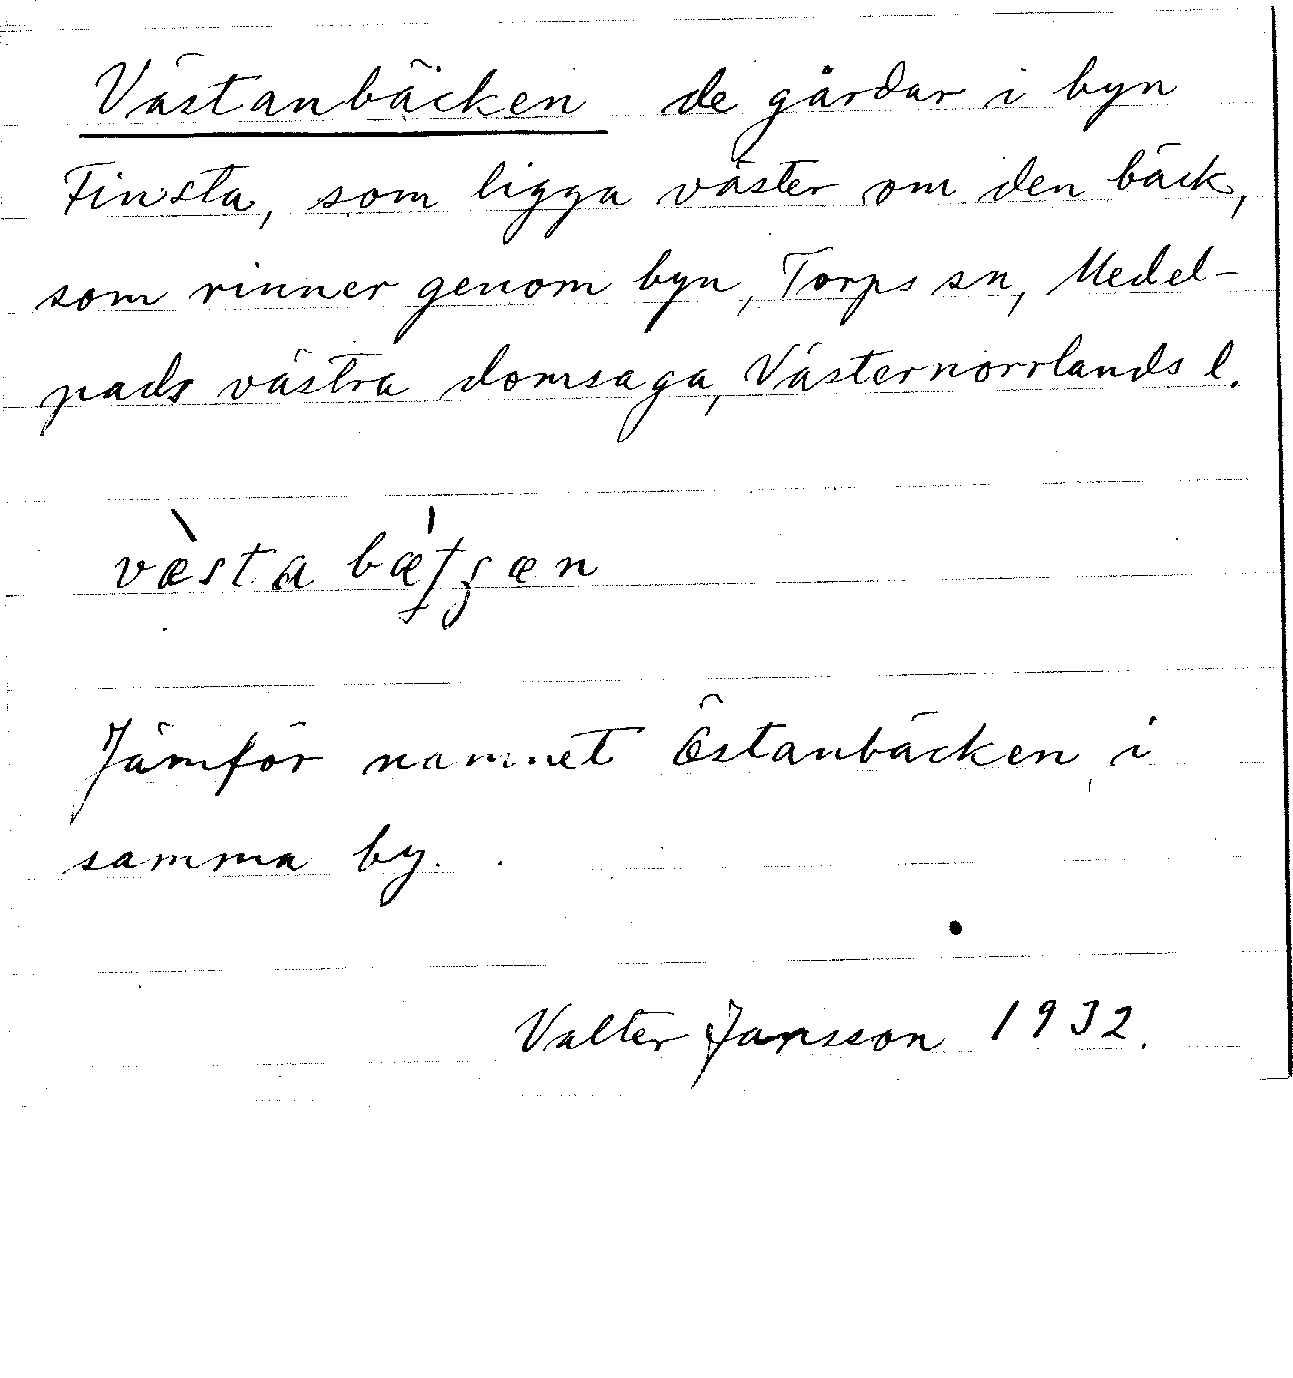 Västanbäcken de gårdar i byn
Finsta, som ligga väster om den bäck,
som rinner genom byn, Torps sn, Medel-
pads västra domsaga, Västernorrlands l.
væ̀sta
Jämför namnet Östanbäcken i
samma by.
Valter Jansson 1932.